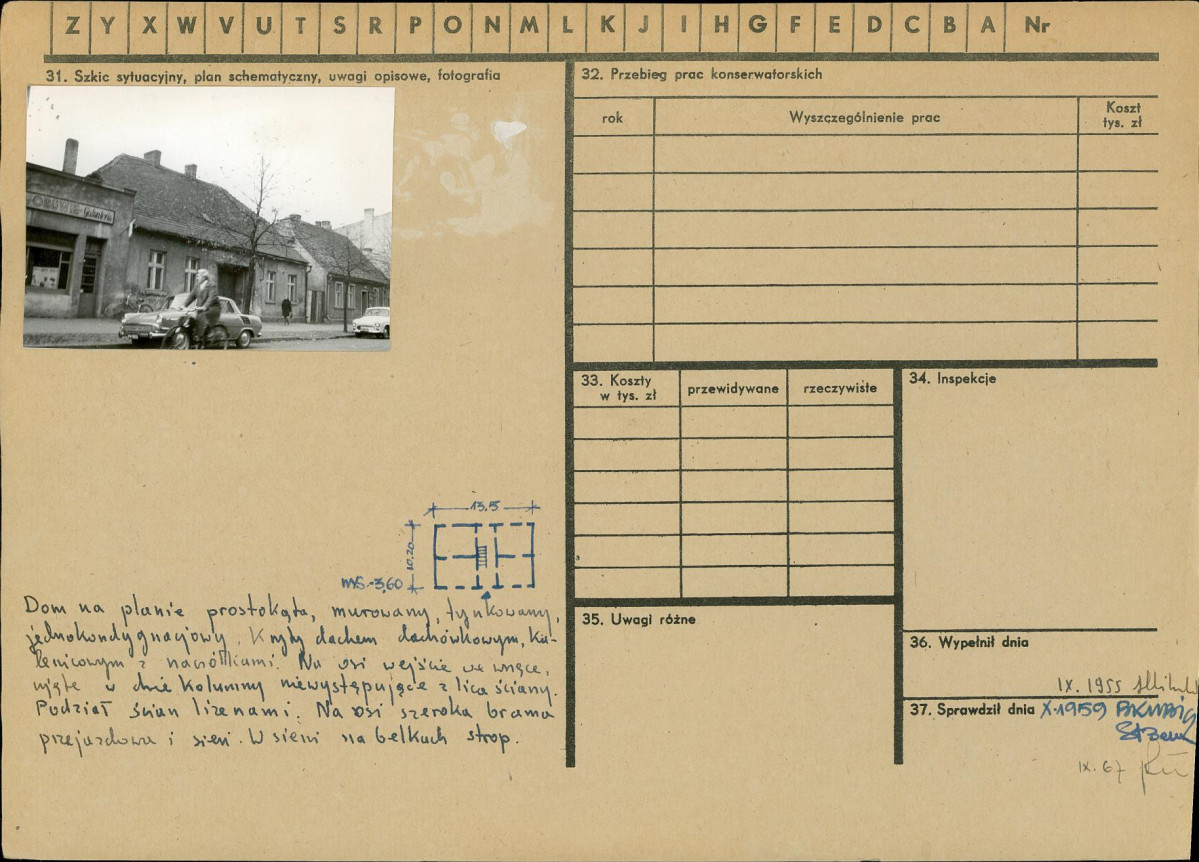 Z Y X W V U T S R P O N M L K J I H G F E D C B A Nr
31. Szkic sytuacyjny, plan schematyczny, uwagi opisowe, fotografia
OBUWIE - Galanteria
13,5
10.20
3,60
Dom na planie prostokąta, murowany, tynkowany,
jednokondygnacjowy. Kryty dachem dachówkowym, ka-
lenicowym z naczółkami. Na osi wejście we wnęce,
ujęte w dwie kolumny niewystępujące z lica ściany.
Podział ścian lizenami. Na osi szeroka brama
przejazdowa i sień. W sieni na belkach strop.
32. Przebieg prac konserwatorskich
rok Wyszczególnienie prac Koszt
tys. zł
33. Koszty
w tys. zł przewidywane rzeczywiste
34. Inspekcje
35. Uwagi różne
36. Wypełnił dnia
IX. 1955
37. Sprawdził dnia X.1959
IX. 67